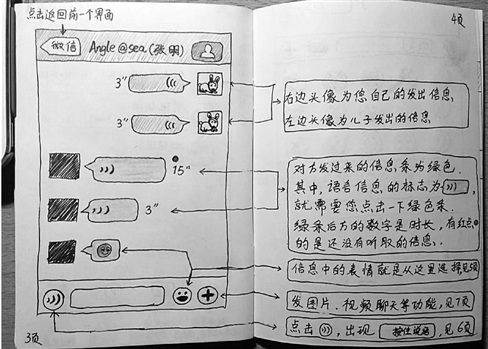 点击返回前一个界面
微信
Angle@sea(张明)
3"
3"
15"
3"
3页
4页
右边头像为您自己的发出信息
左边头像为儿子发出的信息
对方发过来的信息条为绿色.
其中,语音信息的标志为
就需要您点击一下绿色条.
绿条后方的数字是时长,有红点
的是还没有听取的信息.
信息中的表情就是从这里选择见5页
发图片、视频聊天等功能,见7页
点击 ,出现 按住说话 ,见6页